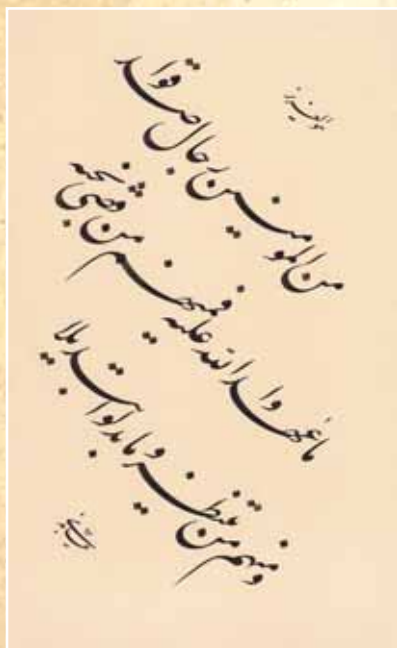 هو العزیز
من المومنین رجال صدقوا
ما عهدوا الله علیه فمنهم من قضی نحبه
و منهم من ینتظر و ما بدلوا تبدیلا